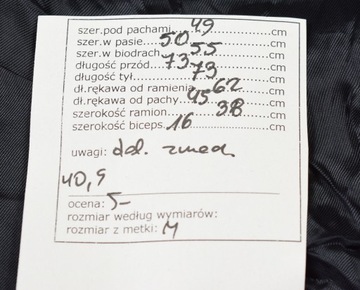 szer.pod pachami 49 cm
szer.w pasie 50 cm
szer.w biodrach 55 cm
długość przód 73 cm
długość tył 73 cm
dł.rękawa od ramienia 62 cm
dł.rękawa od pachy 45 cm
szerokość ramion 38 cm
szerokość biceps 16 cm
uwagi:
40,9
ocena: 5-
rozmiar według wymiarów:
rozmiar z metki: M